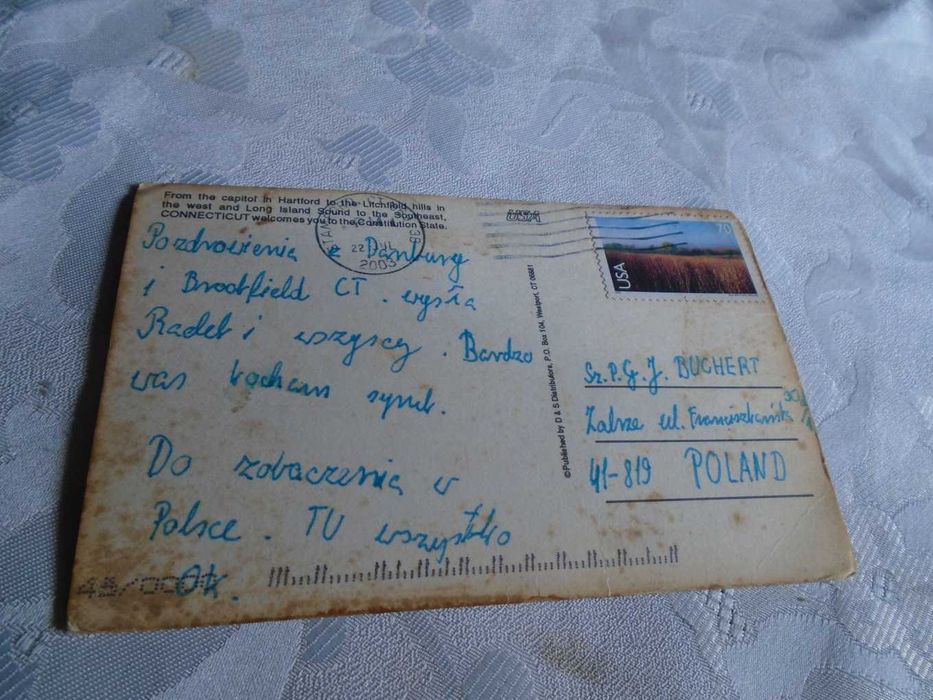 From the capitol in Hartford to the Litchfield hills in
the west and Long Island Sound to the Southeast,
CONNECTICUT welcomes you to the Constitution State.
USA
22 JUL
2003
70
USA
Pozdrowienia z Danbury
i Brookfield CT. wysła
Radek i wszyscy. Bardzo
was kocham synek.
Do zobaczenia w
Polsce. TU wszystko
Ok.
© Published by D & S Distributors, P.O. Box 104, Westport, CT 06881
Sz.P.G.J. BUCHERT
Zabrze ul. Franciszkańska
41-819 POLAND